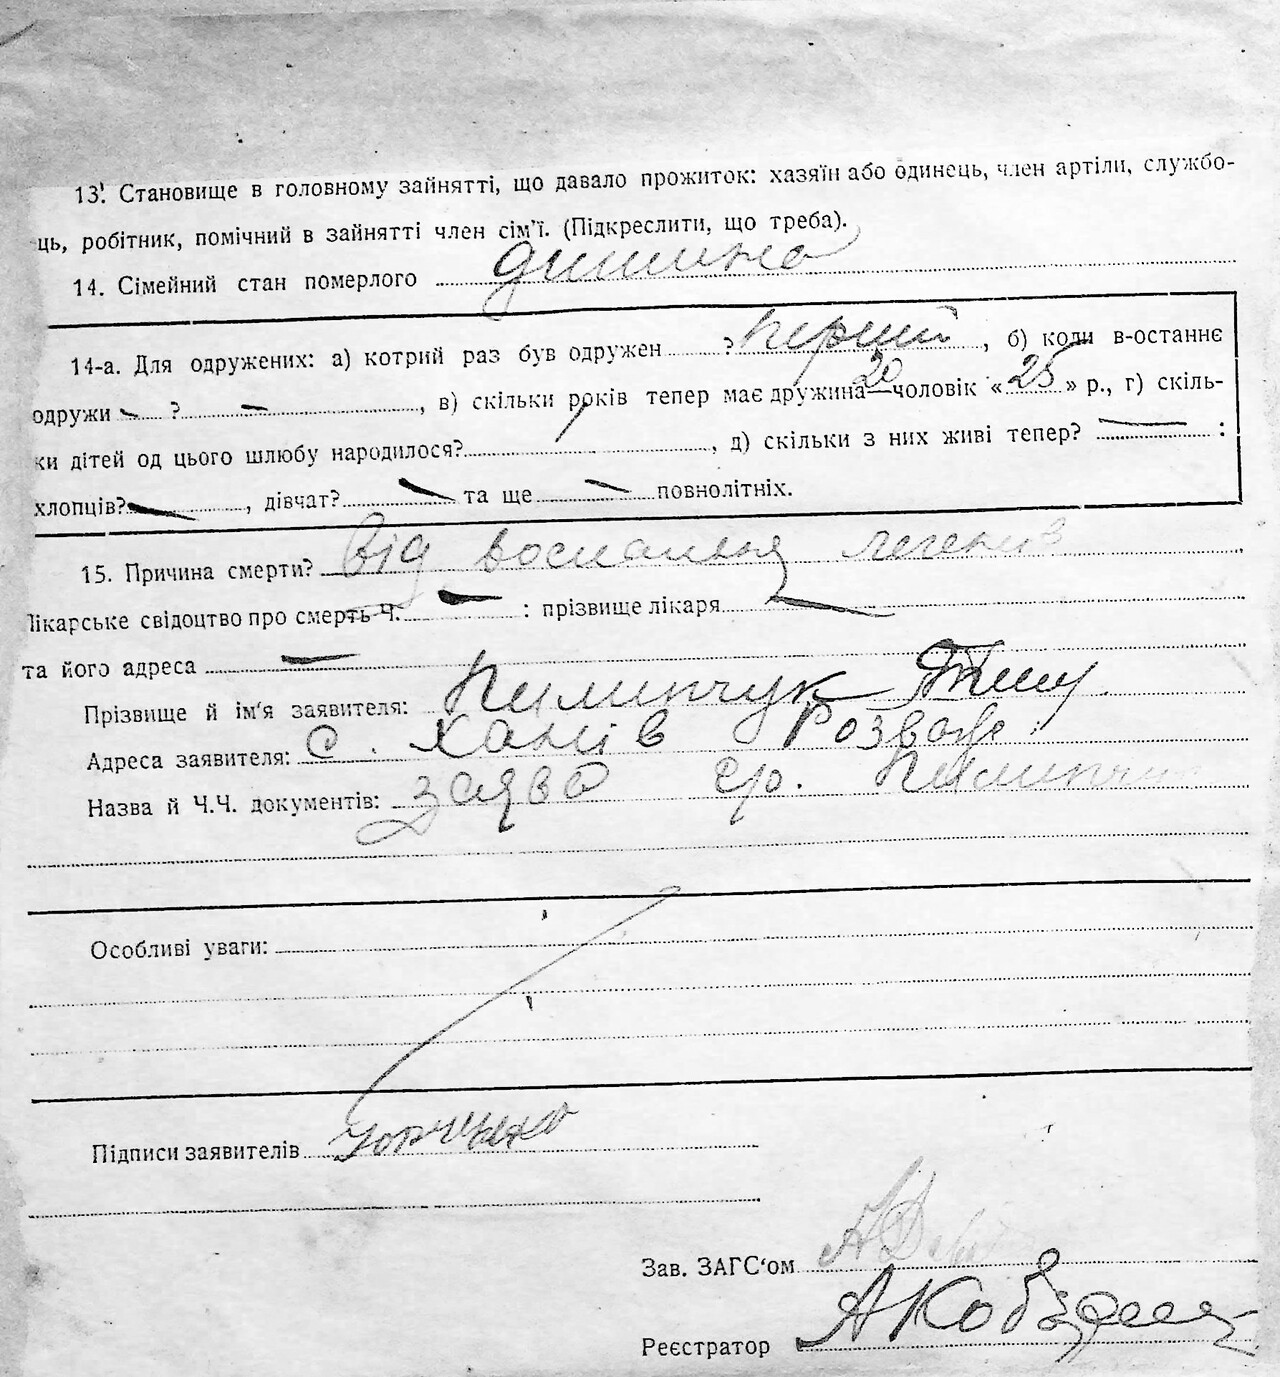 13. Становище в головному зайнятті, що давало прожиток: хазяїн або одинець, член артіли, службо-
ць, робітник, помічний в зайнятті член сім'ї. (Підкреслити, що треба).
14. Сімейний стан померлого дитина
14-а. Для одружених: а) котрий раз був одружен ? перший, б) коли в-останнє
одружи — ? —, в) скільки років тепер має дружина 20 — чоловік «25» р., г) скіль-
ки дітей од цього шлюбу народилося? , д) скільки з них живі тепер? — :
хлопців? —, дівчат? — та ще — повнолітніх.
15. Причина смерти? від воспаленя легенів
Лікарське свідоцтво про смерть Ч. — : прізвище лікаря —
та його адреса —
Прізвище й ім'я заявителя: Пилипчук
Адреса заявителя: с. Ханів Розваж
Назва й Ч.Ч. документів: заява гр. Пилипчук
Особливі уваги:
Підписи заявителів
Зав. ЗАГС'ом
Реєстратор